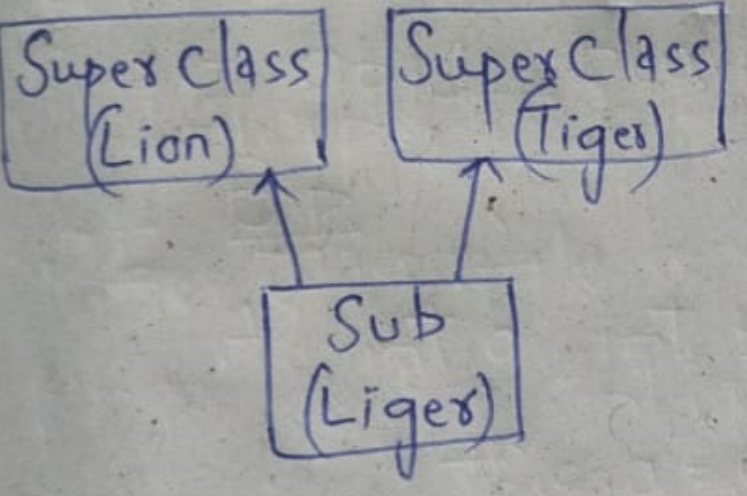 Super Class
(Lion)
Super Class
(Tiger)
Sub
(Liger)